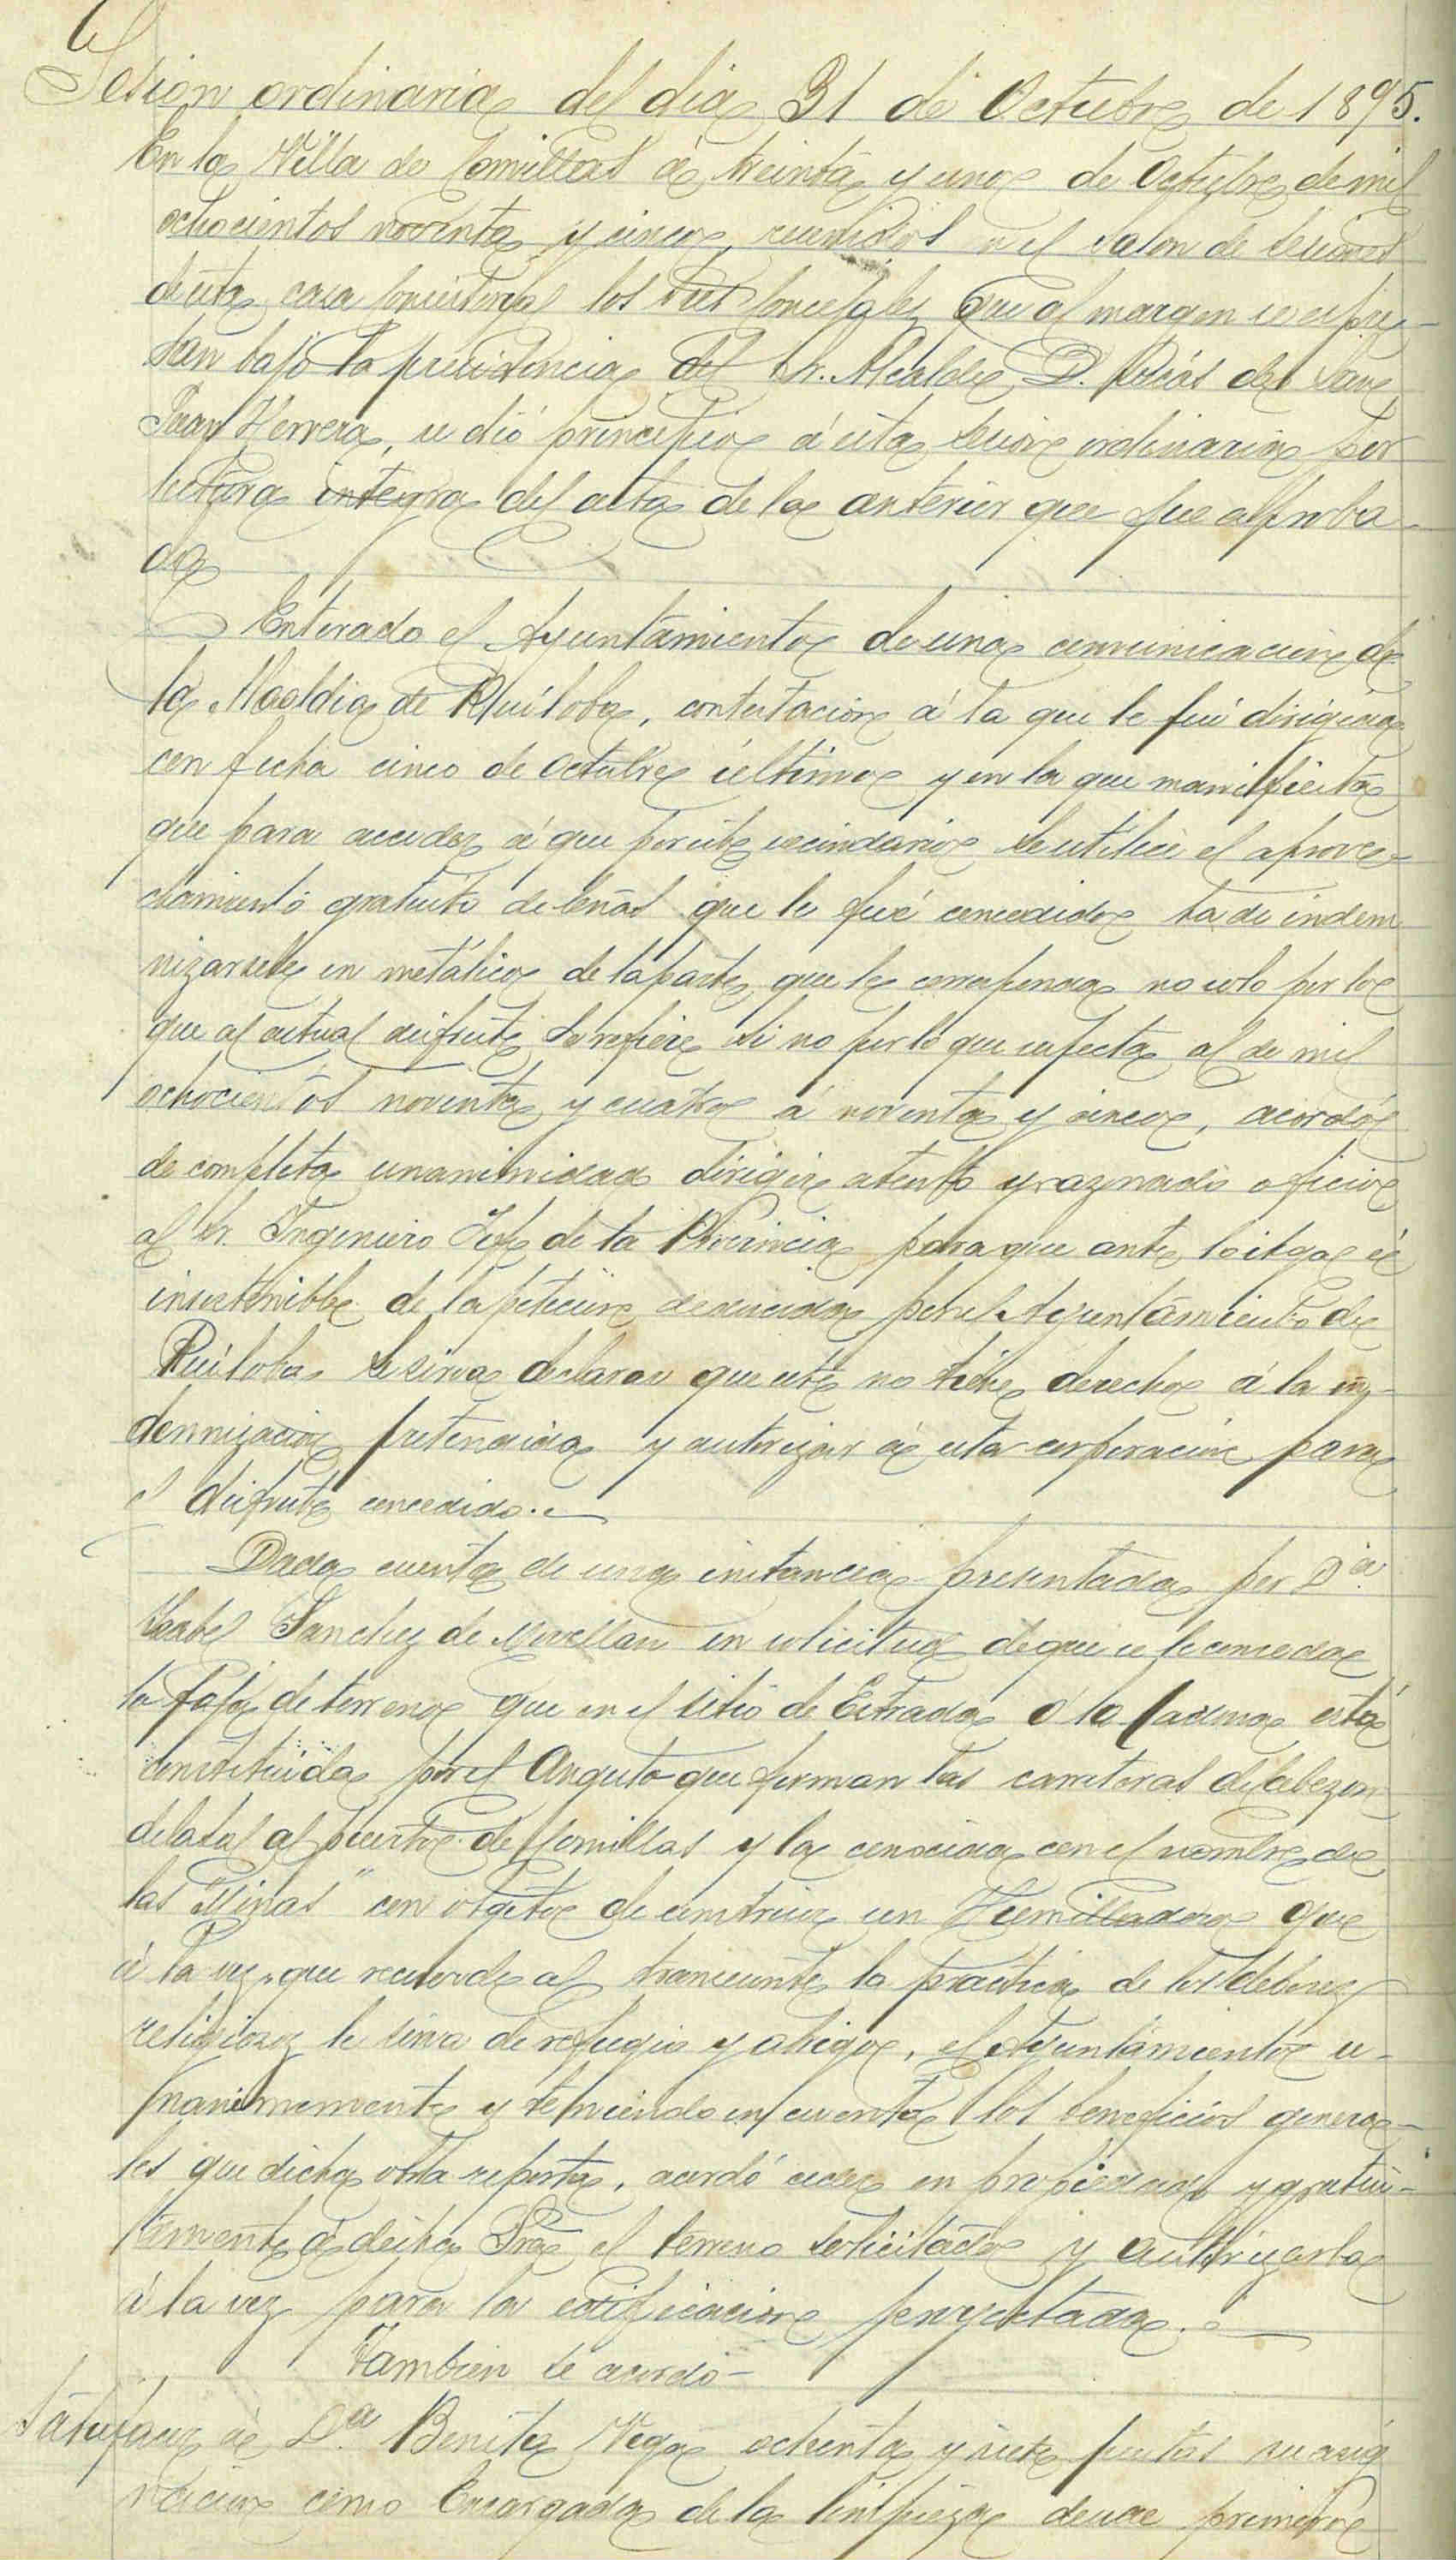 Sesion ordinaria del dia 31 de Octubre de 1895.
En la Villa de Comillas á treinta y uno de Octubre de mil
ochocientos noventa y cinco, reunidos en el salon de sesiones
de esta casa consistorial los Sres Concejales que al margen se espre-
san bajo la presidencia del Sr. Alcalde D. de San
Juan Herrera, se dió principio á esta sesion ordinaria por
lectura integra del acta de la anterior que fue aproba-
da
Enterado el Ayuntamiento de una comunicacion de
la Alcaldia de Ruiloba, contestacion á la que le fué dirigida
con fecha cinco de Octubre último y en la que manifiesta
que para acceder á que por este vecindario se utilice el aprove-
chamiento gratuito de leñas que le fué concedido ha de indem
nizarsele en metálico de la parte que le corresponda no solo por lo
que al actual disfrute se refiere si no por lo que afecta al de mil
ochocientos noventa y cuatro á noventa y cinco, acordó
de completa unanimidad dirigir atento y razonado oficio
al Sr. Ingeniero Jefe de la Provincia para que ante lo ilegal é
insostenible de la peticion deducida por el Ayuntamiento de
Ruiloba se sirva declarar que este no tiene derecho á la in-
demnizacion pretendida y autorizar á esta corporacion para
el disfrute concedido.
Dada cuenta de una instancia presentada por Dña.
Isabel Sanchez de Movellan en solicitud de que se le conceda
la faja de terreno que en el sitio de Estrada ó la está
constituida por el Angulo que forman las carreteras de Cabezon
de la Sal al puerto de Comillas y la conocida con el nombre de
las "Minas" con objeto de construir un Humilladero que
á la vez que recuerde al transeunte la practica de los deberes
religiosos le sirva de refugio y abrigo, el Ayuntamiento u-
nanimemente y teniendo en cuenta los beneficios genera-
les que dicha obra reporta, acordó ceder en propiedad y gratui-
tamente á dicha Sra el terreno solicitado y autorizarla
á la vez para la edificacion proyectada.
Tambien se acordó-
Satisfacer á Dª. Benita Vega ochenta y siete pesetas su asig
nacion como Encargada de la limpieza desde primero